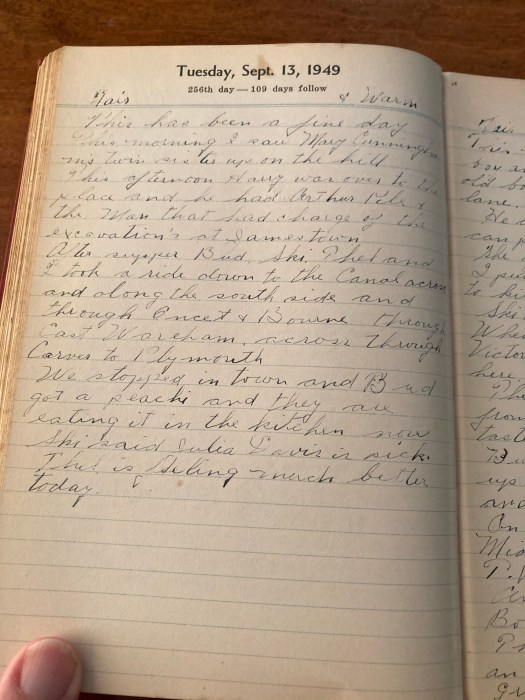 Tuesday, Sept. 13, 1949
256th day — 109 days follow
Fair & Warm
This has been a fine day
This morning I saw Mary Cunningham
my twin sister up on the hill
This afternoon Harry was over to
place and he had Arthur &
the Man that had charge of the
excavation's at Jamestown
After supper Bud, Ski, Phet and
I took a ride down to the Canal across
and along the south side and
through Oncet & Bourne through
East Wareham, across through
Carver to Plymouth
We stopped in town and Bud
got a peache and they are
eating it in the kitchen now
Ski said Julia Davis is sick.
Phet is feeling much better
today.
Fair
This
box an
old bo
lane.
He
can
She
I
to
Ski
When
Victor
here
The
from
Bu
ups
and
On
Mid
an